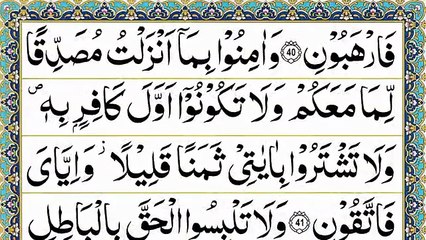 فَارْهَبُوْنِ ﴿40﴾ وَاٰمِنُوْا بِمَاۤ اَنْزَلْتُ مُصَدِّقًا
لِّمَا مَعَكُمْ وَلَا تَكُوْنُوْۤا اَوَّلَ كَافِرٍۭ بِهٖ ۪
وَلَا تَشْتَرُوْا بِاٰيٰتِيْ ثَمَنًا قَلِيْلًا ؗ وَاِيَّايَ
فَاتَّقُوْنِ ﴿41﴾ وَلَا تَلْبِسُوا الْحَقَّ بِالْبَاطِلِ